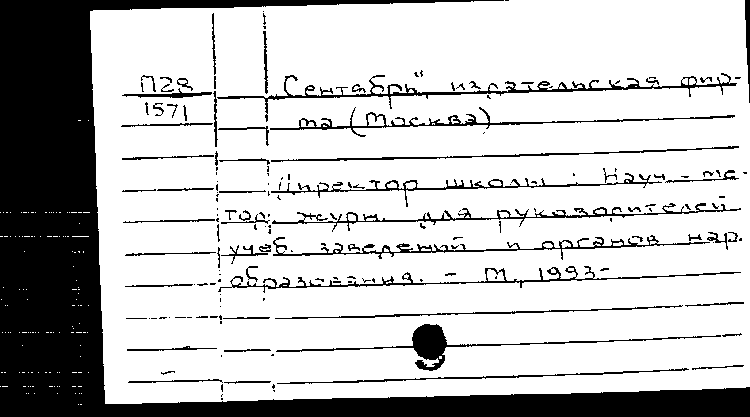 П28
1571
„Сентябрь", издательская фир-
ма (Москва)
Директор школы : Науч.-ме-
тод. журн. для руководителей
учеб. заведений и органов нар.
образования. - М., 1993-